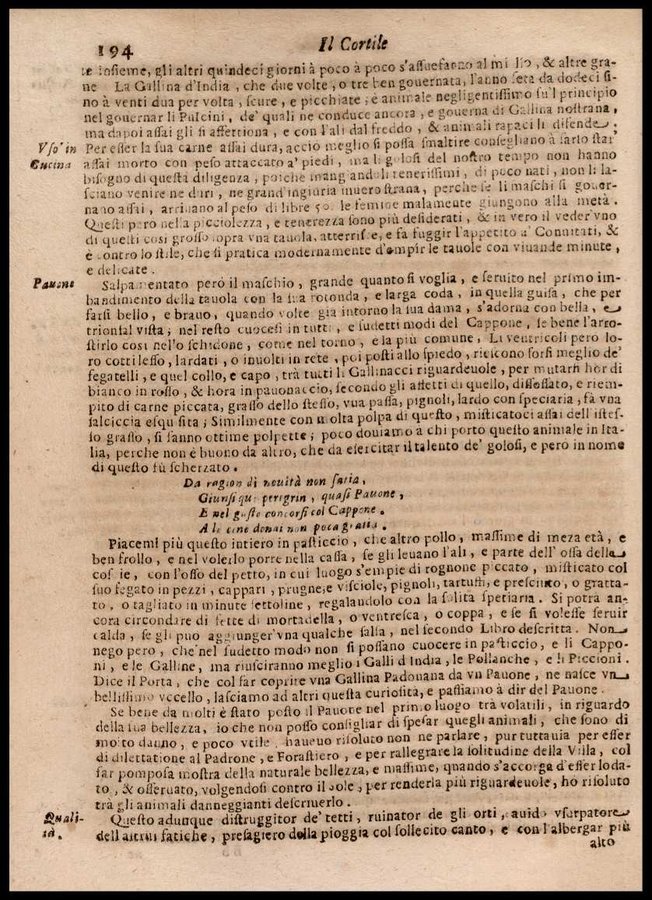 194
Il Cortile
te insieme, gli altri quindeci giorni à poco à poco s'assuefanno al miglio, & altre gra-
ne La Gallina d'India, che due volte, o tre ben gouernata, l'anno feta da dodeci si-
no à venti dua per volta, scure, e picchiate; è animale negligentissimo su'l principio
nel gouernar li Pulcini, de' quali ne conduce ancora, e gouerna di Gallina nostrana,
ma dapoi assai gli si affertiona, e con l'ali dal freddo, & animali rapaci li difende;
Vso in
Cucina
Per esser la sua carne assai dura, acciò meglio si possa smaltire consegliano à farlo star
assai morto con peso attaccato a' piedi, ma li golosi del nostro tempo non hanno
bisogno di questa diligenza; poiche mangiandoli tenerissimi, di poco nati, non li la-
sciano venire ne duri, ne grand'ingiuria muero strana, perche se li maschi si gouer-
nano assai, arriuano al peso di libre 50. le femine malamente giungono alla metà.
Questi però nella picciolezza, e tenerezza sono più desiderati, & in vero il veder vno
di questi così grosso sopra vna tauola, atterrisce, e fa fuggir l'appetito a' Conuitati, &
è contro lo stile, che si pratica modernamente d'empir le tauole con viuande minute,
e delicate.
Pauone
Salpamentato però il maschio, grande quanto si voglia, e seruito nel primo im-
bandimento della tauola con la sua rotonda, e larga coda, in quella guisa, che per
farsi bello, e brauo, quando volte già intorno la sua dama, s'adorna con bella, e
trionfal vista; nel resto cuocesi in tutti, e sudetti modi del Cappone, se bene l'arro-
stirlo così nello schidone, come nel torno, e la più comune, Li ventricoli però lo-
ro cotti lesso, lardati, o inuolti in rete, poi posti allo spiedo, riescono forsi meglio de'
fegatelli, e quel collo, e capo, trà tutti li Gallinacci riguardeuole, per mutarsi hor di
bianco in rosso, & hora in pauonaccio, secondo gli affetti di quello, dissossato, e riem-
pito di carne piccata, grasso dello stesso, vua passa, pignoli, lardo con speciaria, fà vna
salciccia esquisita; Similmente con molta polpa di questo, misticatoci assai dell'istes-
so grasso, si fanno ottime polpette; poco douiamo a chi portò questo animale in Ita-
lia, perche non è buono da altro, che da esercitar il talento de' golosi, e però in nome
di questo fù scherzato.
Da ragion di nouità non satia,
Giunsi qui peregrin, quasi Pauone,
E nel gusto concorsi col Cappone.
A le cene donai non poca gratia.
Piacemi più questo intiero in pasticcio, che altro pollo, massime di meza età, e
ben frollo, e nel volerlo porre nella cassa, se gli leuano l'ali, e parte dell'ossa delle
coscie, con l'osso del petto, in cui luogo s'empie di rognone piccato, misticato col
suo fegato in pezzi, cappari, prugne, e visciole, pignoli, tartuffi, e presciutto, o gratta-
to, o tagliato in minute fettoline, regalandolo con la solita spetiaria. Si potrà an-
cora circondare di fette di mortadella, o ventresca, o coppa, e se si volesse seruir
calda, se gli può aggiunger vna qualche salsa, nel secondo Libro descritta. Non
nego però, che nel sudetto modo non si possano cuocere in pasticcio, e li Cappo-
ni, e le Galline, ma riusciranno meglio i Galli d'India, le Pollanche, e li Piccioni.
Dice il Porta, che col far coprire vna Gallina Padouana da vn Pauone, ne nasce vn
bellissimo vccello, lasciamo ad altri questa curiosità, e passiamo à dir del Pauone.
Se bene da molti è stato posto il Pauone nel primo luogo trà volatili, in riguardo
della sua bellezza, io che non posso consigliar di spesar quegli animali, che sono di
molto danno, e poco vtile, haueuo risoluto non ne parlare, pur tuttauia per esser
di dilettatione al Padrone, e Forastiero, e per rallegrare la solitudine della Villa, col
far pomposa mostra della naturale bellezza, e massime, quando s'accorga d'esser loda-
to, & osseruato, volgendosi contro il sole, per renderla più riguardeuole, ho risoluto
trà gli animali danneggianti descriuerlo.
Quali-
tà.
Questo adunque distruggitor de' tetti, ruinator de gli orti, auido vsurpatore
dell'altrui fatiche, presagiero della pioggia col sollecito canto, e con l'albergar più
alto